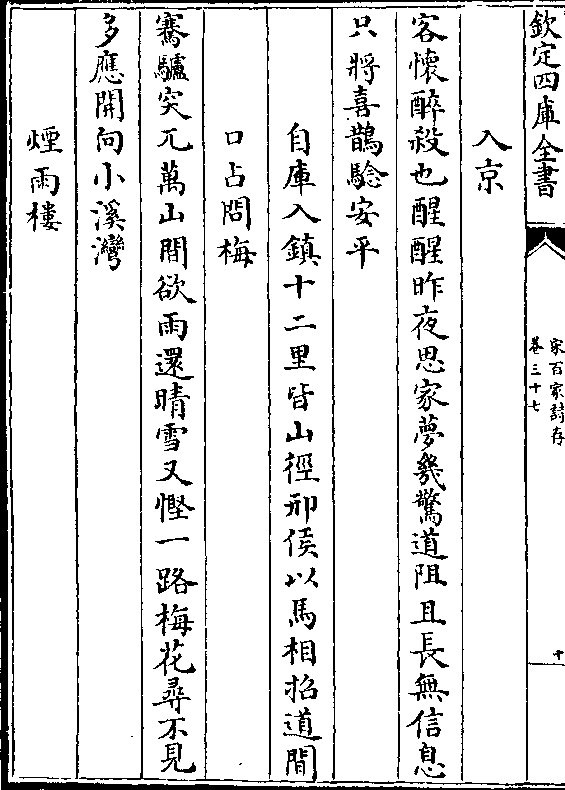 欽定四庫全書
宋百家詩存
卷三十七
十
入京
客懷醉殺也醒醒昨夜思家夢幾驚道阻且長無信息
只將喜鵲驗安平
自庫入鎮十二里皆山徑邢侯以馬相招道間
口占問梅
騫驢突兀萬山間欲雨還晴雪又慳一路梅花尋不見
多應開向小溪灣
煙雨樓